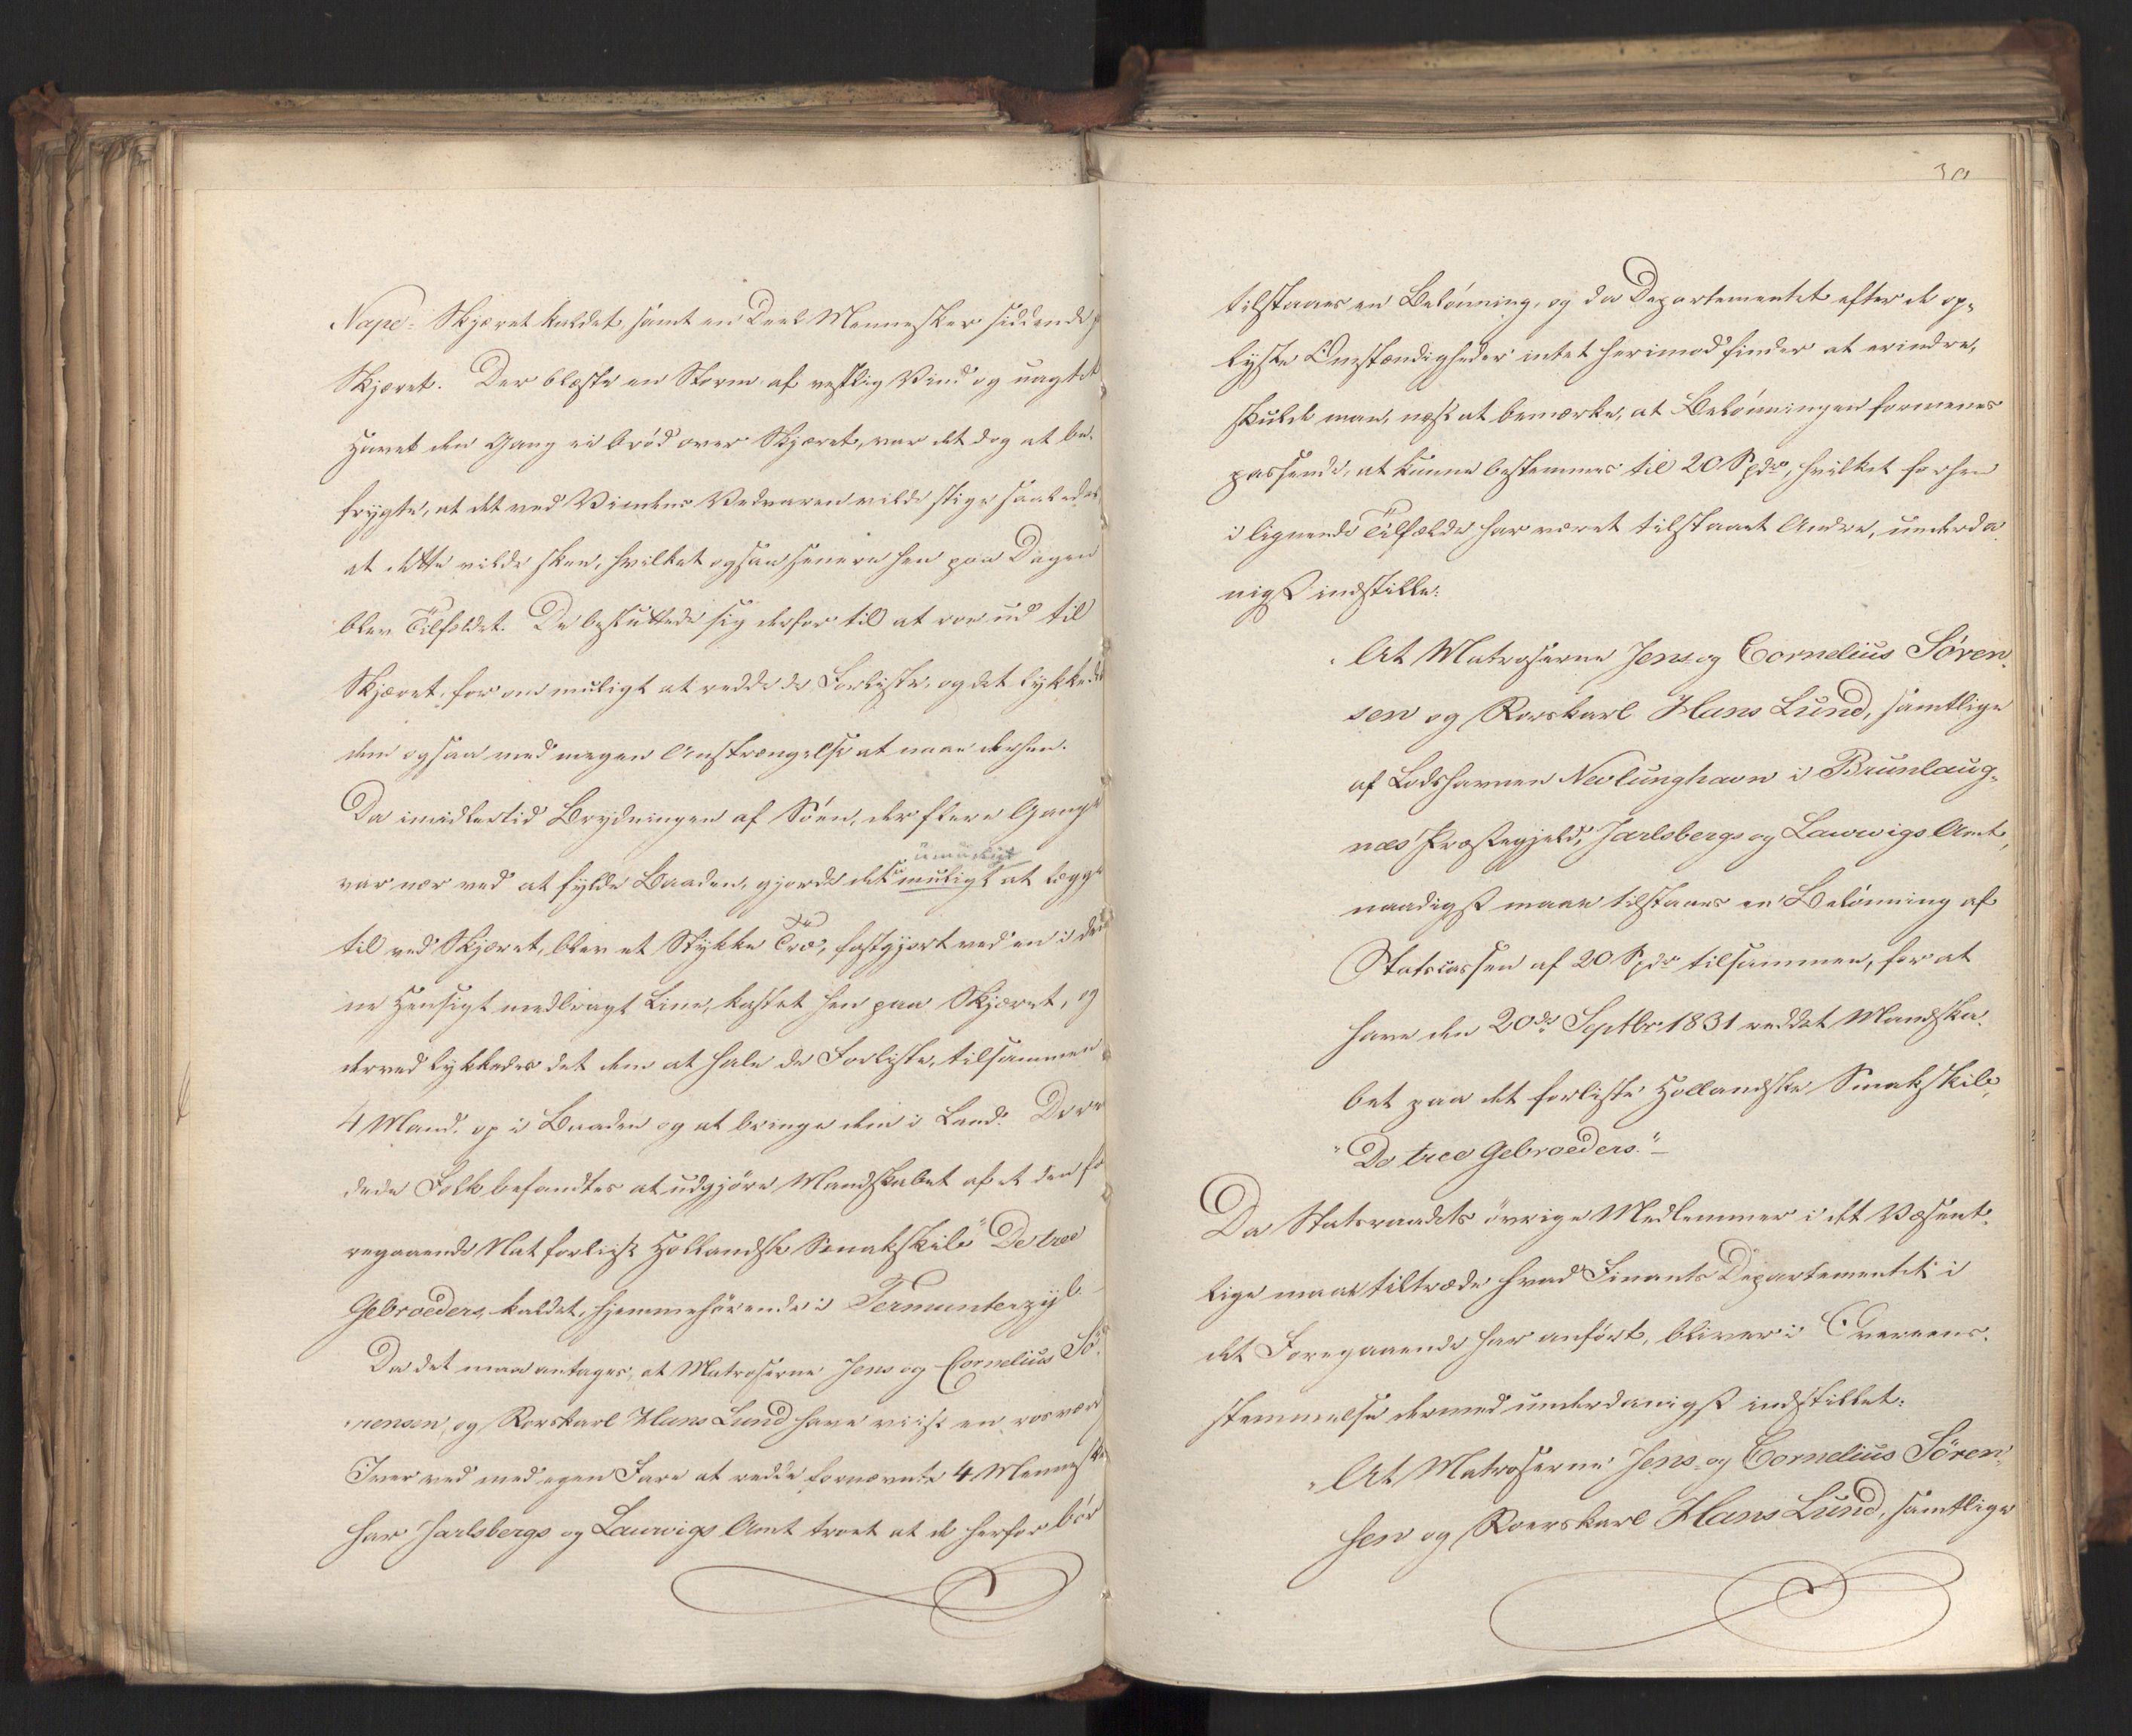 Nape-Skjæret kaldet samt en Deel Mennesker siddende p
Skjæret. Der blæste en Storm af vestlig Vind og uagtet
Havet den Gang ei brød over Skjæret, var det dog at be-
frygte, at det ved Vindens Vedvaren vilde stige saaledes
at dette vilde skee, hvilket ogsaa senere hen paa Dagen
blev Tilfeldet. De besluttede sig derfor til at roe ud til
Skjæret, for om muligt at redde de Forliste, og det lykkedes
dem ogsaa med megen Anstrængelse at naae derhen.
Da imidlertid Brydningen af Söen, der flere Gange
umuligt
var nær ved at fylde Baaden, gjorde det muligt at lægge
til ved Skjæret, blev et Stykke Træ, fastgjort ved en i den-
ne Hensigt medbragt Line, kastet hen paa Skjæret, og
derved lykkedes det dem at hale de Forliste, tilsammen
4 Mand, op i Baaden og at bringe dem i Land. De re
dede Folk befandtes at udgjöre Mandskabet af et den fo
regaaende Nat forliist Hollandsk Smakskib "De tree
Gebroeders, kaldet, hjemmehörende i Termunterzyl.
Da det maa antages, at Matroserne Jens og Cornelius Sö-
rensen, og Rorskarl Hans Lund have viist en rosværd
Iver ved med egen Fare at redde fornævnte 4 Menneske
har Jarlsbergs og Laurvigs Amt troet at de herfor bör
30
tilstaaes en Belönning, og da Departementet efter de op-
lyste Omstændigheder intet herimod finder at erindre,
skulde man, næst at bemærke, at Belönningen formenes
passende, at kunne bestemmes til 20 Spdr, hvilket forhen
i lignende Tilfælde har været tilstaaet Andre, underda-
nigst indstille:
"At Matroserne Jens og Cornelius Sören-
sen og Rorskarl Hans Lund, samtlige
af Lodshavnen Nevlunghavn i Brunlaug-
næs Præstegjeld, Jarlsbergs og Laurvigs Amt,
naadigst maae tilstaaes en Belönning af
Statscassen af 20 Spdr tilsammen, for at
have den 20de Septbr 1831 reddet Mandska-
bet paa det forliste Hollandske Smakskib,
"De tree Gebroeders."
Da Statsraadets övrige Medlemmer i det Væsent-
lige maae tiltræde hvad Finants Departementet i
det Foregaaende har anfört, bliver i Overeens-
stemmelse dermed underdanigst indstillet:
"At Matroserne Jens og Cornelius Sören-
sen og Roerskarl Hans Lund, samtlige